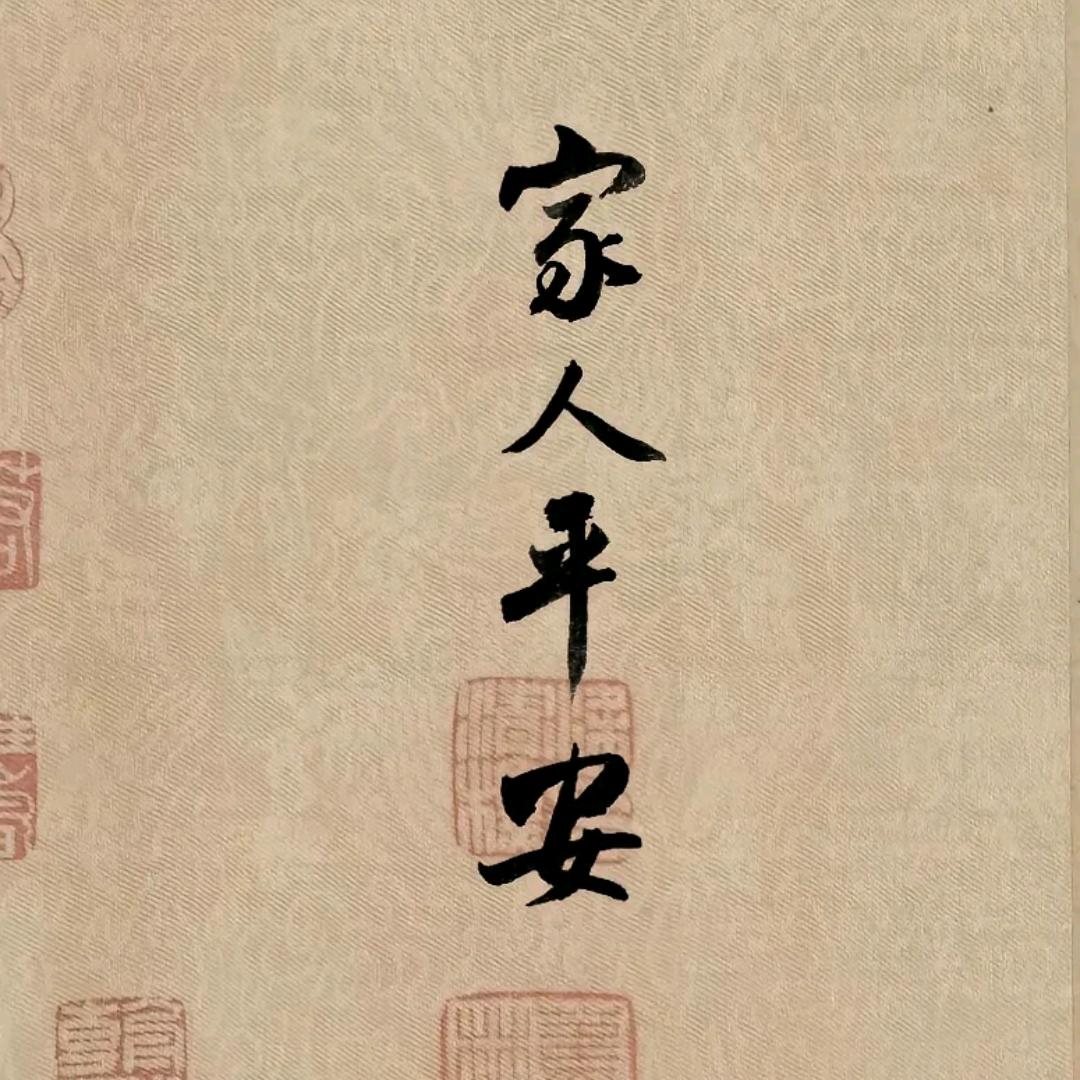 家人平安